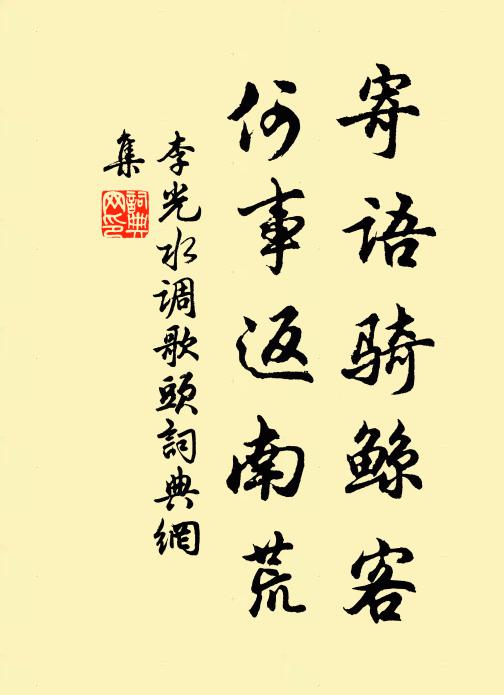 寄语骑鲸客
何事返南荒
李光水调歌頭詞典網
集
詞典
网印